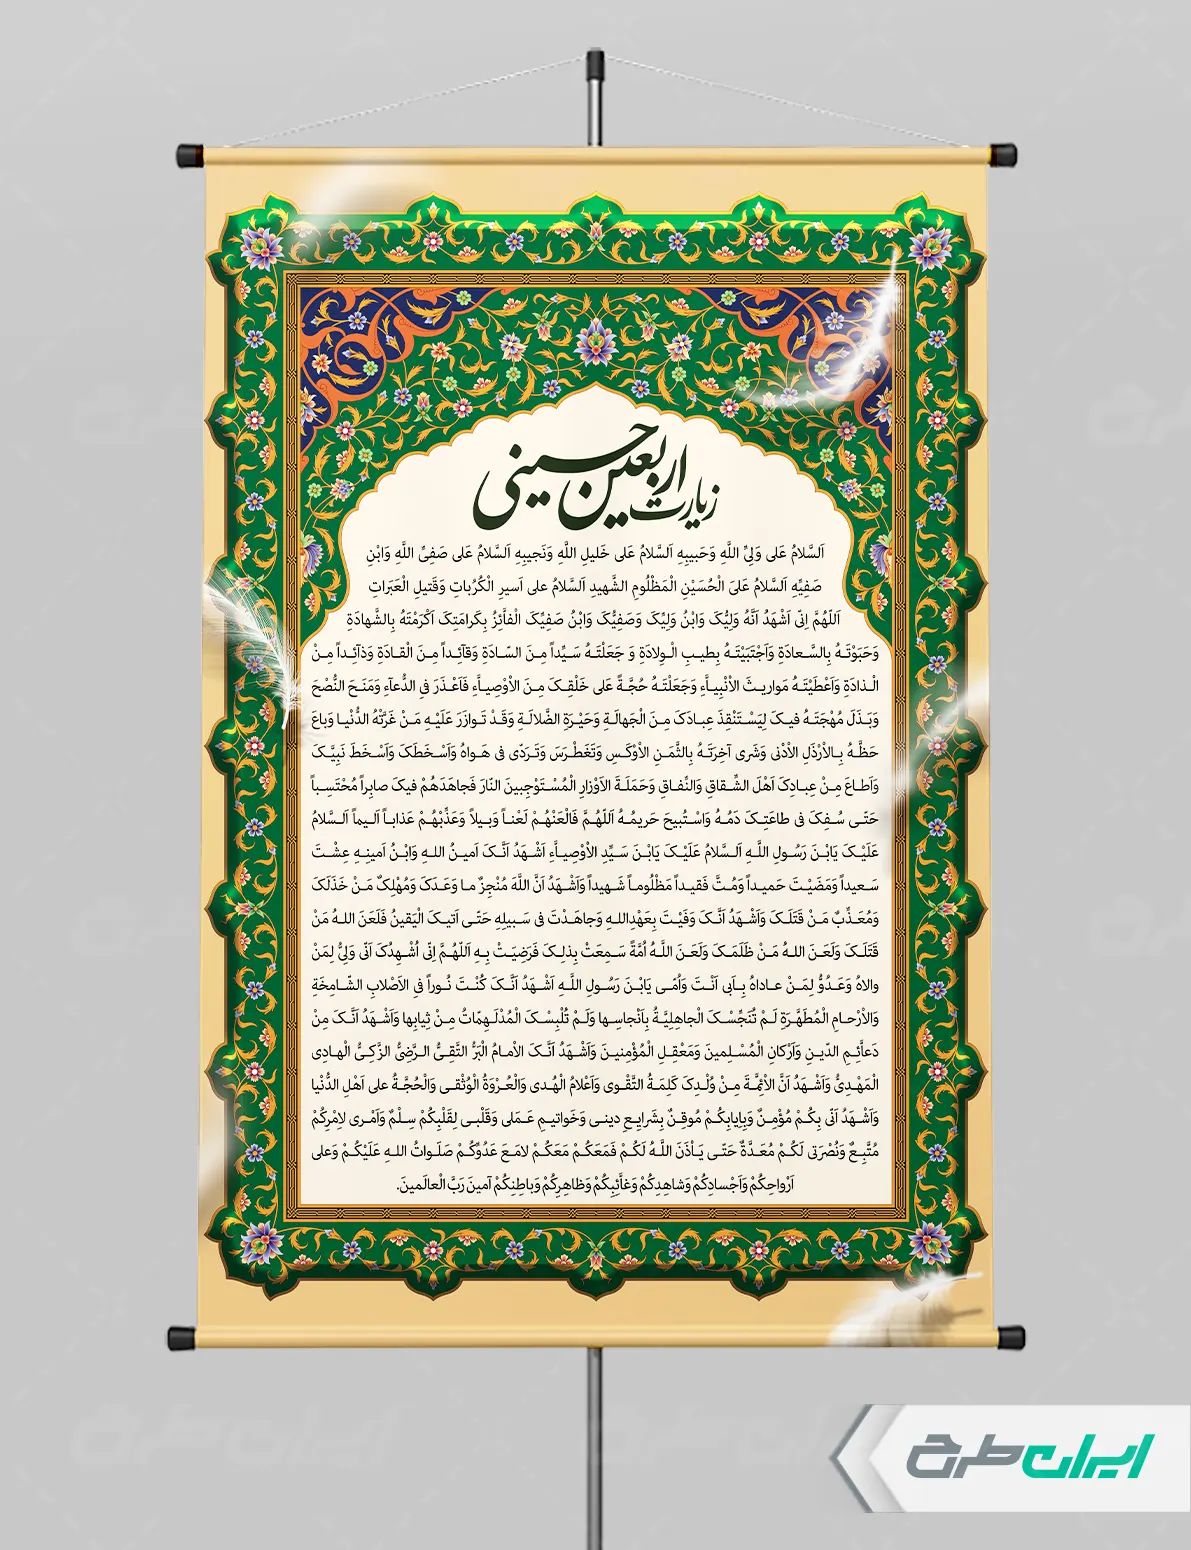 زیارت اربعین حسینی
اَلسَّلامُ عَلی وَلِیِّ اللَّهِ وَحَبیبِهِ اَلسَّلامُ عَلی خَلیلِ اللَّهِ وَنَجیبِهِ اَلسَّلامُ عَلی صَفِیِّ اللَّهِ وَابْنِ
صَفِیِّهِ اَلسَّلامُ عَلیَ الْحُسَیْنِ الْمَظْلُومِ الشَّهیدِ اَلسَّلامُ علی اَسیرِ الْکُرُباتِ وَقَتیلِ الْعَبَراتِ
اَللّهُمَّ اِنّی اَشْهَدُ اَنَّهُ وَلِیُّکَ وَابْنُ وَلِیِّکَ وَصَفِیُّکَ وَابْنُ صَفِیِّکَ الْفاَّئِزُ بِکَرامَتِکَ اَکْرَمْتَهُ بِالشَّهادَةِ
وَحَبَوْتَهُ بِالسَّعادَةِ وَاَجْتَبَیْتَهُ بِطیبِ الْوِلادَةِ وَ جَعَلْتَهُ سَیِّداً مِنَ السّادَةِ وَقآئِداً مِنَ الْقادَةِ وَذآئِداً مِنْ
الْذادَةِ وَاَعْطَیْتَهُ مَواریثَ الاَْنْبِیاَّءِ وَجَعَلْتَهُ حُجَّةً عَلی خَلْقِکَ مِنَ الاَْوْصِیاَّءِ فَاَعْذَرَ فیِ الدُّعآءِ وَمَنَحَ النُّصْحَ
وَبَذَلَ مُهْجَتَهُ فیکَ لِیَسْتَنْقِذَ عِبادَکَ مِنَ الْجَهالَةِ وَحَیْرَةِ الضَّلالَةِ وَقَدْ تَوازَرَ عَلَیْهِ مَنْ غَرَّتْهُ الدُّنْیا وَباعَ
حَظَّهُ بِالاَْرْذَلِ الاَْدْنی وَشَری آخِرَتَهُ بِالثَّمَنِ الاَْوْکَسِ وَتَغَطْرَسَ وَتَرَدّی فی هَواهُ وَاَسْخَطَکَ وَاَسْخَطَ نَبِیَّکَ
وَاَطاعَ مِنْ عِبادِکَ اَهْلَ الشِّقاقِ وَالنِّفاقِ وَحَمَلَةَ الاَْوْزارِ الْمُسْتَوْجِبینَ النّارَ فَجاهَدَهُمْ فیکَ صابِراً مُحْتَسِباً
حَتّی سُفِکَ فی طاعَتِکَ دَمُهُ وَاسْتُبیحَ حَریمُهُ اَللّهُمَّ فَالْعَنْهُمْ لَعْناً وَبیلاً وَعَذِّبْهُمْ عَذاباً اَلیماً اَلسَّلامُ
عَلَیْکَ یَابْنَ رَسُولِ اللَّهِ اَلسَّلامُ عَلَیْکَ یَابْنَ سَیِّدِ الاَْوْصِیاَّءِ اَشْهَدُ اَنَّکَ اَمینُ اللهِ وَابْنُ اَمینِهِ عِشْتَ
سَعیداً وَمَضَیْتَ حَمیداً وَمُتَّ فَقیداً مَظْلُوماً شَهیداً وَاَشْهَدُ اَنَّ اللَّهَ مُنْجِزٌ ما وَعَدَکَ وَمُهْلِکٌ مَنْ خَذَلَکَ
وَمُعَذِّبٌ مَنْ قَتَلَکَ وَاَشْهَدُ اَنَّکَ وَفَیْتَ بِعَهْدِاللهِ وَجاهَدْتَ فی سَبیلِهِ حَتّی اَتیکَ الْیَقینُ فَلَعَنَ اللهُ مَنْ
قَتَلَکَ وَلَعَنَ اللهُ مَنْ ظَلَمَکَ وَلَعَنَ اللَّهُ اُمَّةً سَمِعَتْ بِذلِکَ فَرَضِیَتْ بِهِ اَللّهُمَّ اِنّی اُشْهِدُکَ اَنّی وَلِیُّ لِمَنْ
والاهُ وَعَدُوُّ لِمَنْ عاداهُ بِاَبی اَنْتَ وَاُمّی یَابْنَ رَسُولِ اللَّهِ اَشْهَدُ اَنَّکَ کُنْتَ نُوراً فیِ الاَْصْلابِ الشّامِخَةِ
وَالاَْرْحامِ الْمُطَهَّرَةِ لَمْ تُنَجِّسْکَ الْجاهِلِیَّةُ بِاَنْجاسِها وَلَمْ تُلْبِسْکَ الْمُدْلَهِمّاتُ مِنْ ثِیابِها وَاَشْهَدُ اَنَّکَ مِنْ
دَعاَّئِمِ الدّینِ وَاَرْکانِ الْمُسْلِمینَ وَمَعْقِلِ الْمُؤْمِنینَ وَاَشْهَدُ اَنَّکَ الاِْمامُ الْبَرُّ التَّقِیُّ الرَّضِیُّ الزَّکِیُّ الْهادِی
الْمَهْدِیُّ وَاَشْهَدُ اَنَّ الاَْئِمَّةَ مِنْ وُلْدِکَ کَلِمَةُ التَّقْوی وَاَعْلامُ الْهُدی وَالْعُرْوَةُ الْوُثْقی وَالْحُجَّةُ علی اَهْلِ الدُّنْیا
وَاَشْهَدُ اَنّی بِکُمْ مُؤْمِنٌ وَبِاِیابِکُمْ مُوقِنٌ بِشَرایِعِ دینی وَخَواتیمِ عَمَلی وَقَلْبی لِقَلْبِکُمْ سِلْمٌ وَاَمْری لاَِمْرِکُمْ
مُتَّبِعٌ وَنُصْرَتی لَکُمْ مُعَدَّةٌ حَتّی یَاْذَنَ اللَّهُ لَکُمْ فَمَعَکُمْ مَعَکُمْ لامَعَ عَدُوِّکُمْ صَلَواتُ اللهِ عَلَیْکُمْ وَعَلی
اَرْواحِکُمْ وَاَجْسادِکُمْ وَشاهِدِکُمْ وَغاَّئِبِکُمْ وَظاهِرِکُمْ وَباطِنِکُمْ آمینَ رَبَّ الْعالَمینَ.
ایران طرح